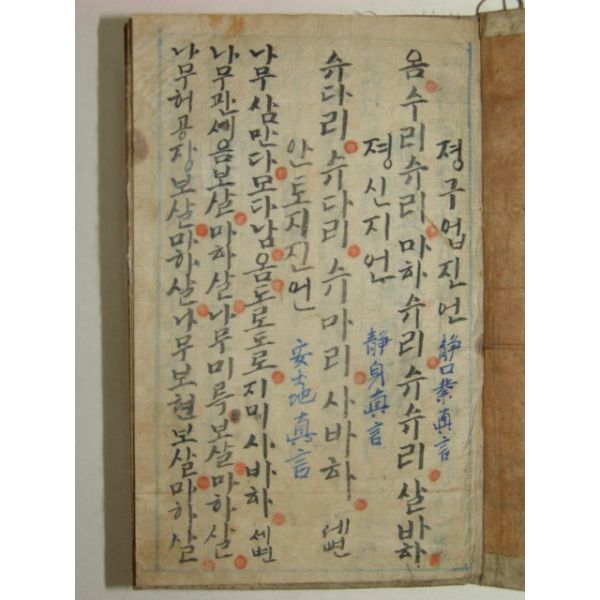 졍구업진언 静口業真言
옴 수리슈리 마하슈리 슈슈리 살바하
졍신지언 静身真言
슈다리 슈다리 슈마리 사바하 세번
안토지진언 安土地真言
나무 삼만다 모다남 옴 도로도로 지미 사바하 세변
나무관세음보살마하살 나무미륵보살마하살
나무허공장보살마하살 나무보현보살마하살